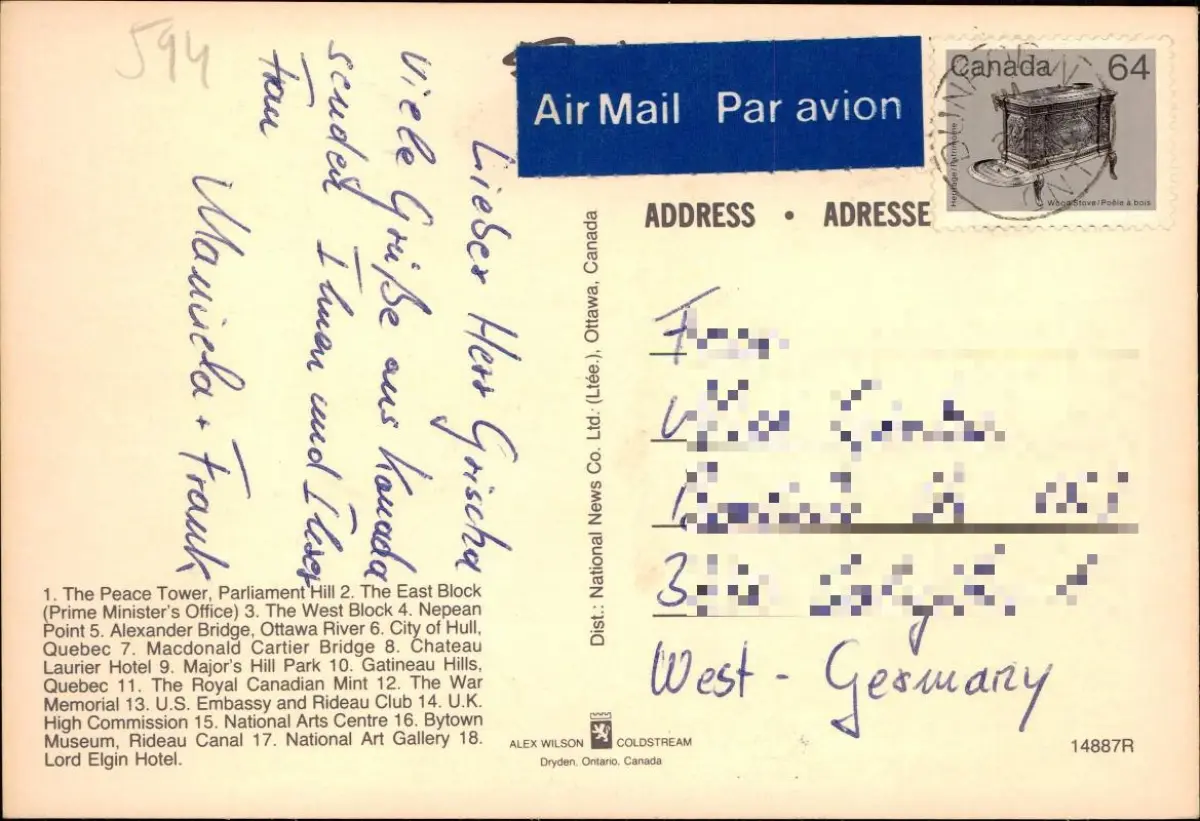 594
Lieber Herr Grischa
Viele Grüße aus Kanada
senden Ihnen und Ihrer
Frau
Manuela + Frank
Air Mail Par avion
Canada 64
Heritage/Patrimoine
Wood Stove/Poêle à bois
ADDRESS • ADRESSE
West - Germany
Dist.: National News Co. Ltd. (Ltée.), Ottawa, Canada
1. The Peace Tower, Parliament Hill 2. The East Block
(Prime Minister's Office) 3. The West Block 4. Nepean
Point 5. Alexander Bridge, Ottawa River 6. City of Hull,
Quebec 7. Macdonald Cartier Bridge 8. Chateau
Laurier Hotel 9. Major's Hill Park 10. Gatineau Hills,
Quebec 11. The Royal Canadian Mint 12. The War
Memorial 13. U.S. Embassy and Rideau Club 14. U.K.
High Commission 15. National Arts Centre 16. Bytown
Museum, Rideau Canal 17. National Art Gallery 18.
Lord Elgin Hotel.
ALEX WILSON COLDSTREAM
Dryden, Ontario, Canada
14887R